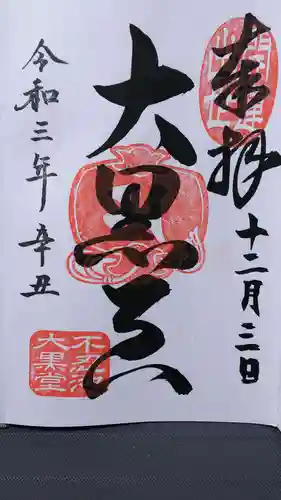 奉拝
十二月三日
大黒天
令和三年辛丑
不忍池
大黒堂